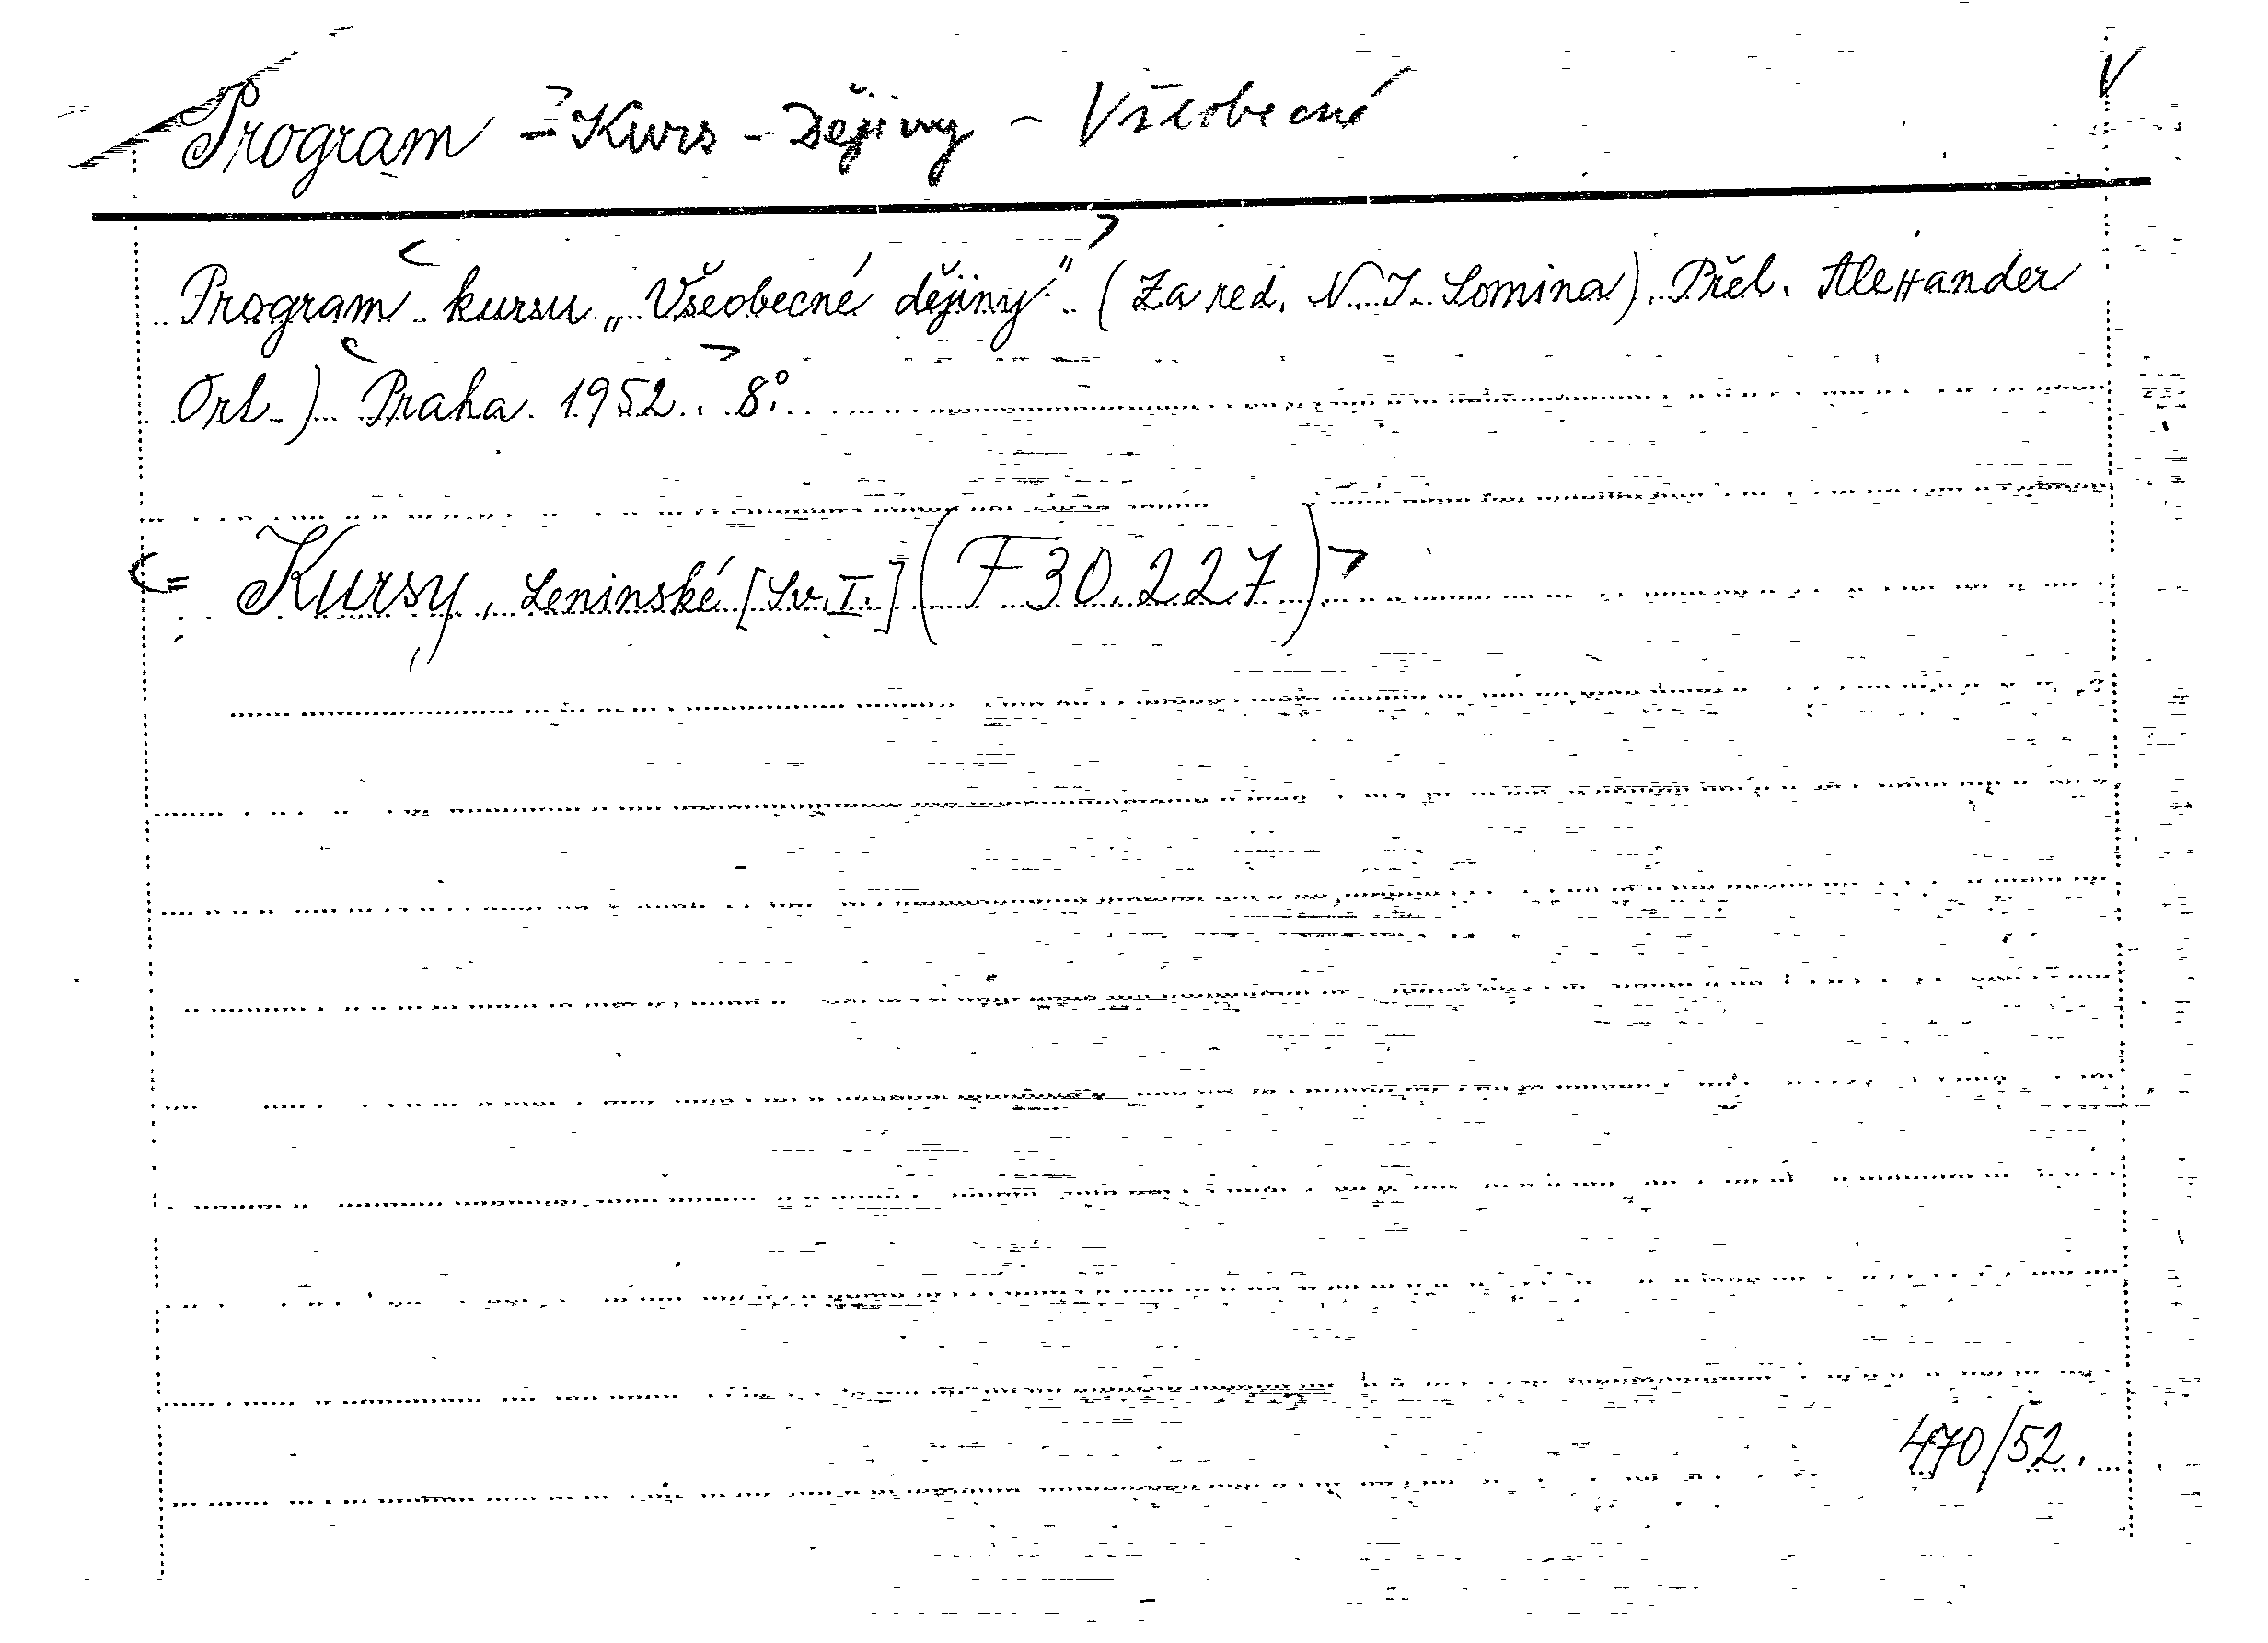 Program - Kurs - Dějiny - Všeobecné V
Program kursu „Všeobecné dějiny" (Za red. N. I. Lomina). Přel. Alexander
Ort.) Praha 1952. 8°.
= Kursy, Leninské [Sv. I.] (F 30.227)
470/52.